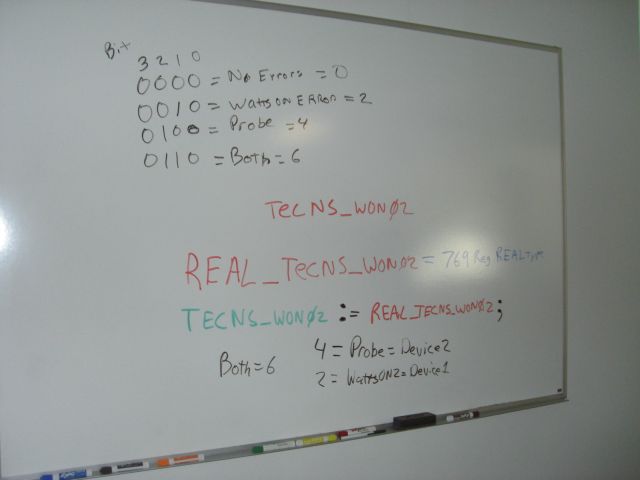 Bit
3 2 1 0
0000 = No Errors = 0
0010 = WattsON ERROR = 2
0100 = Probe = 4
0110 = Both = 6
TECNS_WON02
REAL_TECNS_WON02 = 769 Reg REALTYPE
TECNS_WON02 := REAL_TECNS_WON02;
Both = 6
4 = Probe = Device 2
2 = WattsON2 = Device 1